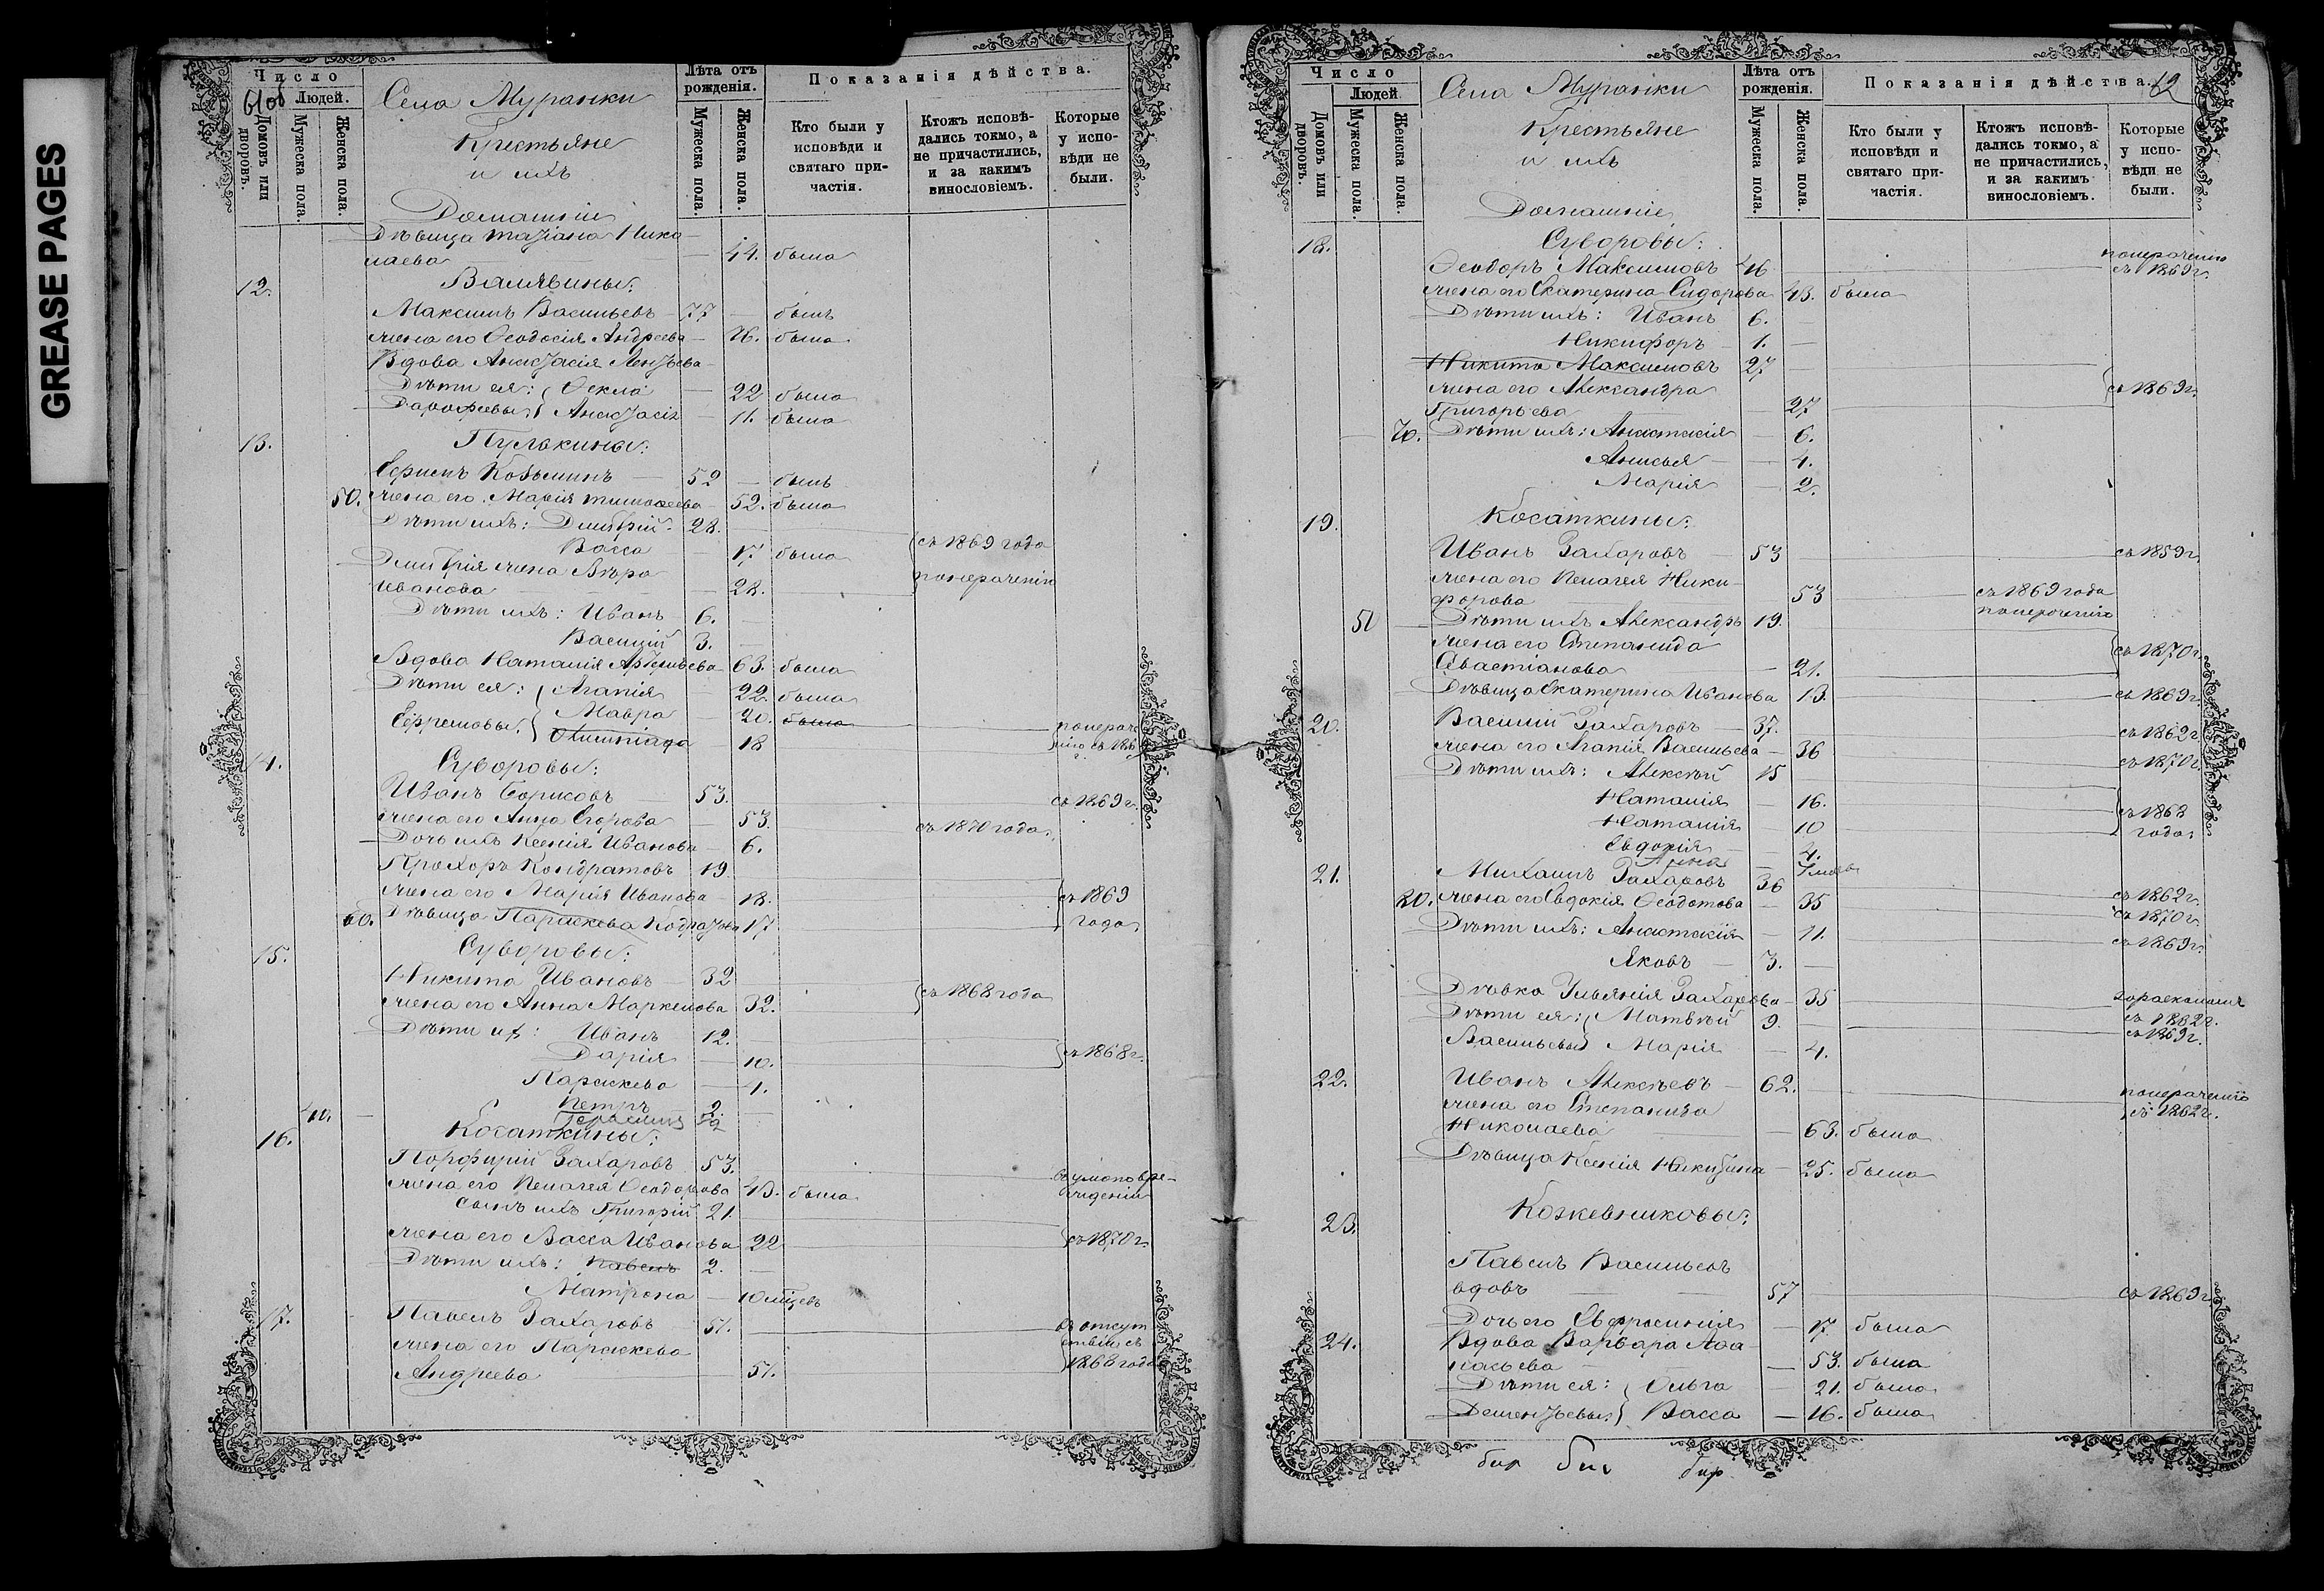 GREASE PAGES
Число
61об Людей.
Домовъ или дворовъ.
Мужеска пола.
Женска пола.
Села Муранки
Крестьяне
и ихъ
Домашніи
Лѣта отъ рожденія.
Мужеска пола.
Женска пола.
Показанія дѣйства.
Кто были у исповѣди и святаго причастія.
Ктожъ исповѣдались токмо, а не причастились, и за какимъ винословіемъ.
Которые у исповѣди не были.
Дѣвица Татіана Нико-
лаева — 44. была
12. Валявины:
Максимъ Васильевъ 77 — былъ
жена его Ѳеодосія Андреева — 76. была
Вдова Анастасія Леонтьева
Дѣти ея: Ѳекла — 22 была
Дорофеевы Анастасія — 11. была
13. Пулькины:
Ефремъ Козьминъ — 52 — былъ
50. жена его Марія Тимофеева 52. была
Дѣти ихъ: Дмитрій 28. —
Васса — 17. была съ 1869 года
Дмитрія жена Вѣра
Иванова — 28. по нераченію
Дѣти ихъ: Иванъ 6. —
Василій 3. —
Вдова Наталія Артемьева 63. была
Дѣти ея: Агапія — 22. была
Мавра — 20. была
Ефремовы Олимпіада — 18 по нерачѣнію съ 186
14. Суворовы:
Иванъ Борисовъ 53. съ 1869 г.
жена его Анна Егорова — 53. съ 1870 года
Дочь ихъ Ксенія Иванова — 6.
Прохоръ Кондратовъ 19.
жена его Марія Иванова — 18. съ 1869
60. Дѣвица Параскева 17 года
15. Суворовы:
Никита Ивановъ — 32
жена его Анна Маркелова 32. съ 1868 года
Дѣти их: Иванъ 12. —
Дарія — 10. съ 1868 г.
Параскева — 4.
Петръ 2. —
Герасимъ
40.
16. Косаткины:
Порфирій Захаровъ 53. въ умоповре-
жена его Пелагея Ѳеодорова 43. была жденіи
Сынъ ихъ Григорій 21.
жена его Васса Иванова 22 съ 1870 г.
Дѣти ихъ: Павелъ 2. —
Матрона — 10 мѣцевъ
17. Павелъ Захаровъ 51. в отсут
жена его Параскева ствіи съ
Андреева — 51. 1868 года
Число
Людей.
Домовъ или дворовъ.
Мужеска пола.
Женска пола.
Села Муранки
Крестьяне
и ихъ
Домашніе
Лѣта отъ рожденія.
Мужеска пола.
Женска пола.
Показанія дѣйства. 62
Кто были у исповѣди и святаго причастія.
Ктожъ исповѣдались токмо, а не причастились, и за какимъ винословіемъ.
Которые у исповѣди не были.
18. Суворовы:
Ѳеодоръ Максимовъ 46 по нераченію съ 1869 г.
жена его Екатерина Сидорова 43. была
Дѣти ихъ: Иванъ 6. —
Никифоръ 1. —
Никита Максимовъ 27 —
жена его Александра съ 1869 г.
Григорьева — 27
70. Дѣти ихъ: Анастасія — 6.
Анисья — 4.
Марія — 2.
19. Косаткины:
Иванъ Захаровъ 53 съ 1859 г.
жена его Пелагея Ники-
форова 53 съ 1869 года
50 Дѣти ихъ Александръ 19. по нераченію
жена его Степанида
Савастіанова — 21. съ 1870 г.
Дѣвица Екатерина Иванова 13. съ 1869 г.
20. Василій Захаровъ 37. съ 1862 г.
жена его Агапія Васильева — 36 съ 1870 г.
Дѣти ихъ: Алексѣй 15 —
Наталія — 16.
Наталія — 10 съ 1868 года
Евдокія — 4.
21. Михаилъ Захаровъ 36 съ 1862 г.
80. жена его Евдокія Ѳеодотова — 35 съ 1870 г.
Дѣти ихъ: Анастасія — 11. съ 1869 г.
Яковъ — 3. —
Дѣвка Ульянія Захарова — 35
Дѣти ея: Матвѣй 9. — съ 1862 г.
Васильевы Марія — 4. съ 1869 г.
22. Иванъ Алексѣевъ — 62. по нераченію
жена его Степанида съ 1862 г.
Николаева — 63. была
Дѣвица Ксенія Никитина — 25. была
23. Кожевниковы:
Павелъ Васильевъ
вдовъ 57 съ 1869 г.
Дочь его Евфросинія — 17 была
24. Вдова Варвара Аѳа-
насьева — 53. была
Дѣти ея: Ольга — 21. была
Дементьевы Васса — 16. была